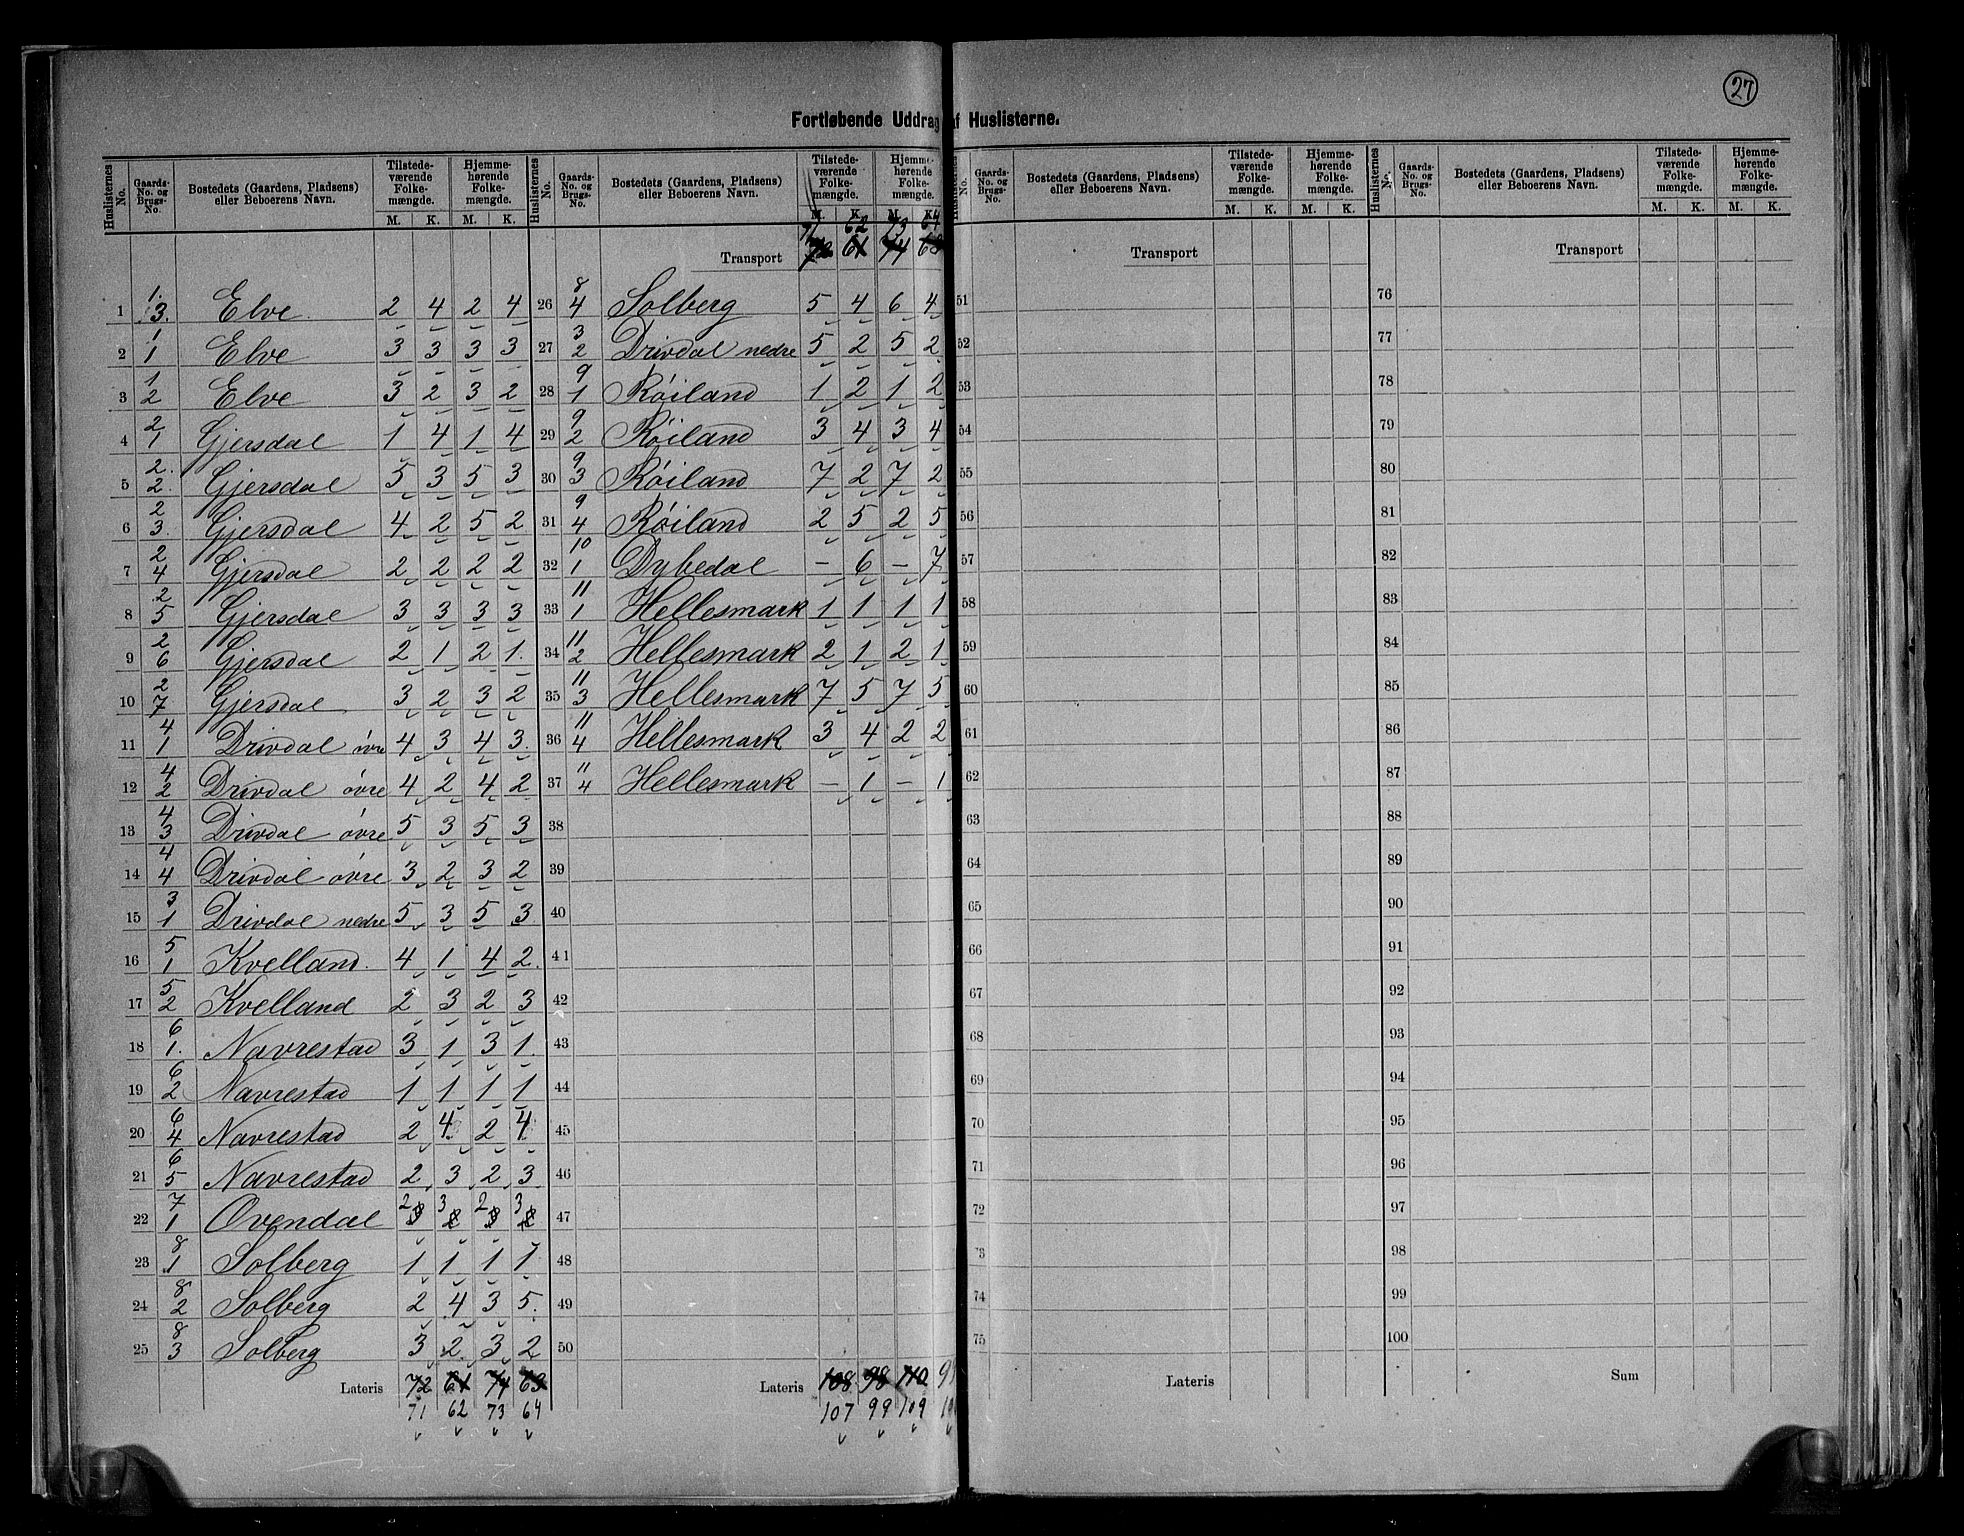 27
Fortløbende Uddrag af Huslisterne.
Huslisternes No. Gaards-No. og Brugs-No. Bostedets (Gaardens, Pladsens) eller Beboerens Navn. Tilstedeværende Folkemængde. M. K. Hjemmehørende Folkemængde. M. K.
1 1. 13. Elve. 2 4 2 4
2 1 1 Elve 3 3 3 3
3 1 2 Elve 3 2 3 2
4 2 1 Gjersdal 1 4 1 4
5 2. 2. Gjersdal 5 3 5 3
6 2 3. Gjersdal 4 2 5 2
7 2 4 Gjersdal 2 2 2 2
8 2 5 Gjersdal 3 3 3 3
9 2 6 Gjersdal 2 1 2 1.
10 2 7 Gjersdal 3 2 3 2
11 4 1 Drivdal övre 4 3 4 3.
12 4 2 Drivdal övre 4 2 4 2
13 4 3 Drivdal övre 5 3 5 3
14 4 4 Drivdal övre 3 2 3 2
15 3 1 Drivdal nedre 5 3 5 3
16 5 1 Kvelland. 4 1 4 2.
17 5 2 Kvelland 2 3 2 3
18 6 1. Navrestad 3 1 3 1.
19 6 2 Navrestad 1 1 1 1
20 6 4 Navrestad 2 4 2 4
21 6 5 Navrestad 2 3 2 3
22 7 1 Ovendal 2 3 2 3
23 8 1 Solberg 1 1 1 1
24 8 2 Solberg 2 4 3 5.
25 8 3 Solberg 3 2 3 2
Lateris 72 61 74 63
71 62 73 64
Huslisternes No. Gaards-No. og Brugs-No. Bostedets (Gaardens, Pladsens) eller Beboerens Navn. Tilstedeværende Folkemængde. M. K. Hjemmehørende Folkemængde. M. K.
71 62 73 64
Transport 72 61 74 63
26 8 4 Solberg 5 4 6 4
27 3 2 Drivdal nedre 5 2 5 2
28 9 1 Røiland 1 2 1 2
29 9 2 Røiland 3 4 3 4
30 9 3 Røiland 7 2 7 2
31 9 4 Røiland 2 5 2 5
32 10 1 Dybedal – 6 – 7
33 11 1 Hellesmark 1 1 1 1
34 11 2 Hellesmark 2 1 2 1
35 11 3 Hellesmark 7 5 7 5
36 11 4 Hellesmark 3 4 2 2
37 11 4 Hellesmark – 1 – 1
38
39
40
41
42
43
44
45
46
47
48
49
50
Lateris 108 98 110
107 99 109
No. Gaards-No. og Brugs-No. Bostedets (Gaardens, Pladsens) eller Beboerens Navn. Tilstedeværende Folkemængde. M. K. Hjemmehørende Folkemængde. M. K.
Transport
51
52
53
54
55
56
57
58
59
60
61
62
63
64
65
66
67
68
69
70
71
72
73
74
75
Lateris
Huslisternes No. Gaards-No. og Brugs-No. Bostedets (Gaardens, Pladsens) eller Beboerens Navn. Tilstedeværende Folkemængde. M. K. Hjemmehørende Folkemængde. M. K.
Transport
76
77
78
79
80
81
82
83
84
85
86
87
88
89
90
91
92
93
94
95
96
97
98
99
100
Sum